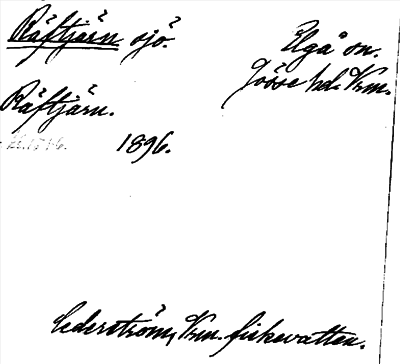 Räftjärn sjö.
Elgå sn.
Jösse hd. Vrm.
Räftjärn.
1896.
Cederström, Vrm. fiskevatten.